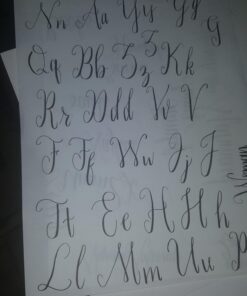 Nn Aa Yy Yy G
Qq Bb Zz Z Kk
Rr Ddd Vv V
F Ff Ww Jj J
Tt Ee H H h
Ll Mm Uu P